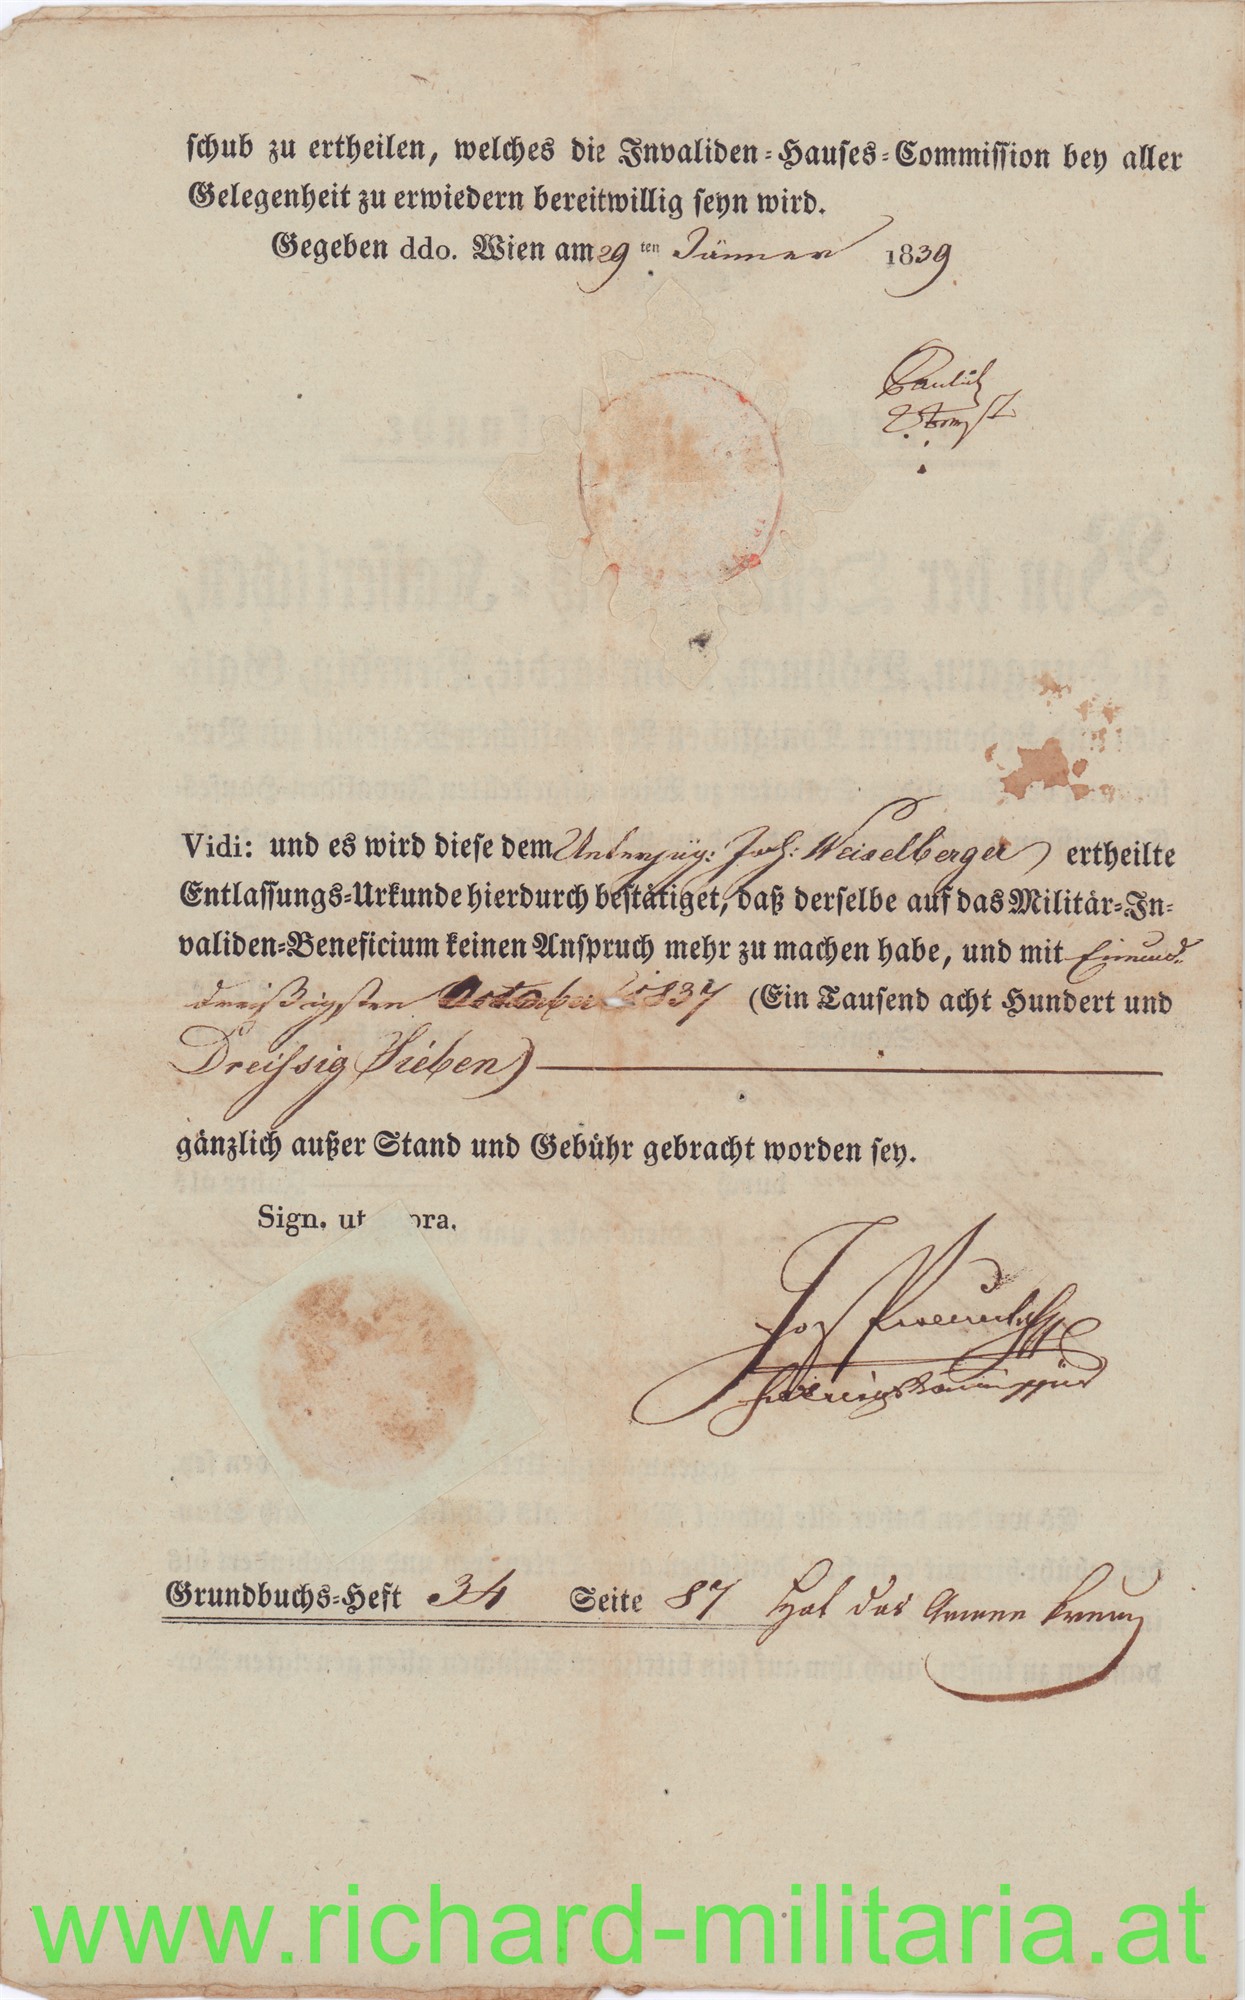 schub zu ertheilen, welches die Invaliden-Hauses-Commission bey aller
Gelegenheit zu erwiedern bereitwillig seyn wird.
Gegeben ddo. Wien am 29 ten Jänner 1839
Vidi: und es wird diese dem Unterzeug: Joh: Weiselberger ertheilte
Entlassungs-Urkunde hierdurch bestätiget, daß derselbe auf das Militär-In-
validen-Beneficium keinen Anspruch mehr zu machen habe, und mit Einund-
dreißigsten October 1837 (Ein Tausend acht Hundert und
Dreissig Sieben)
gänzlich außer Stand und Gebühr gebracht worden sey.
Sign. ut pra.
Jos
Grundbuchs-Heft 34 Seite 87 Hat das Armee Kreuz
www.richard-militaria.at